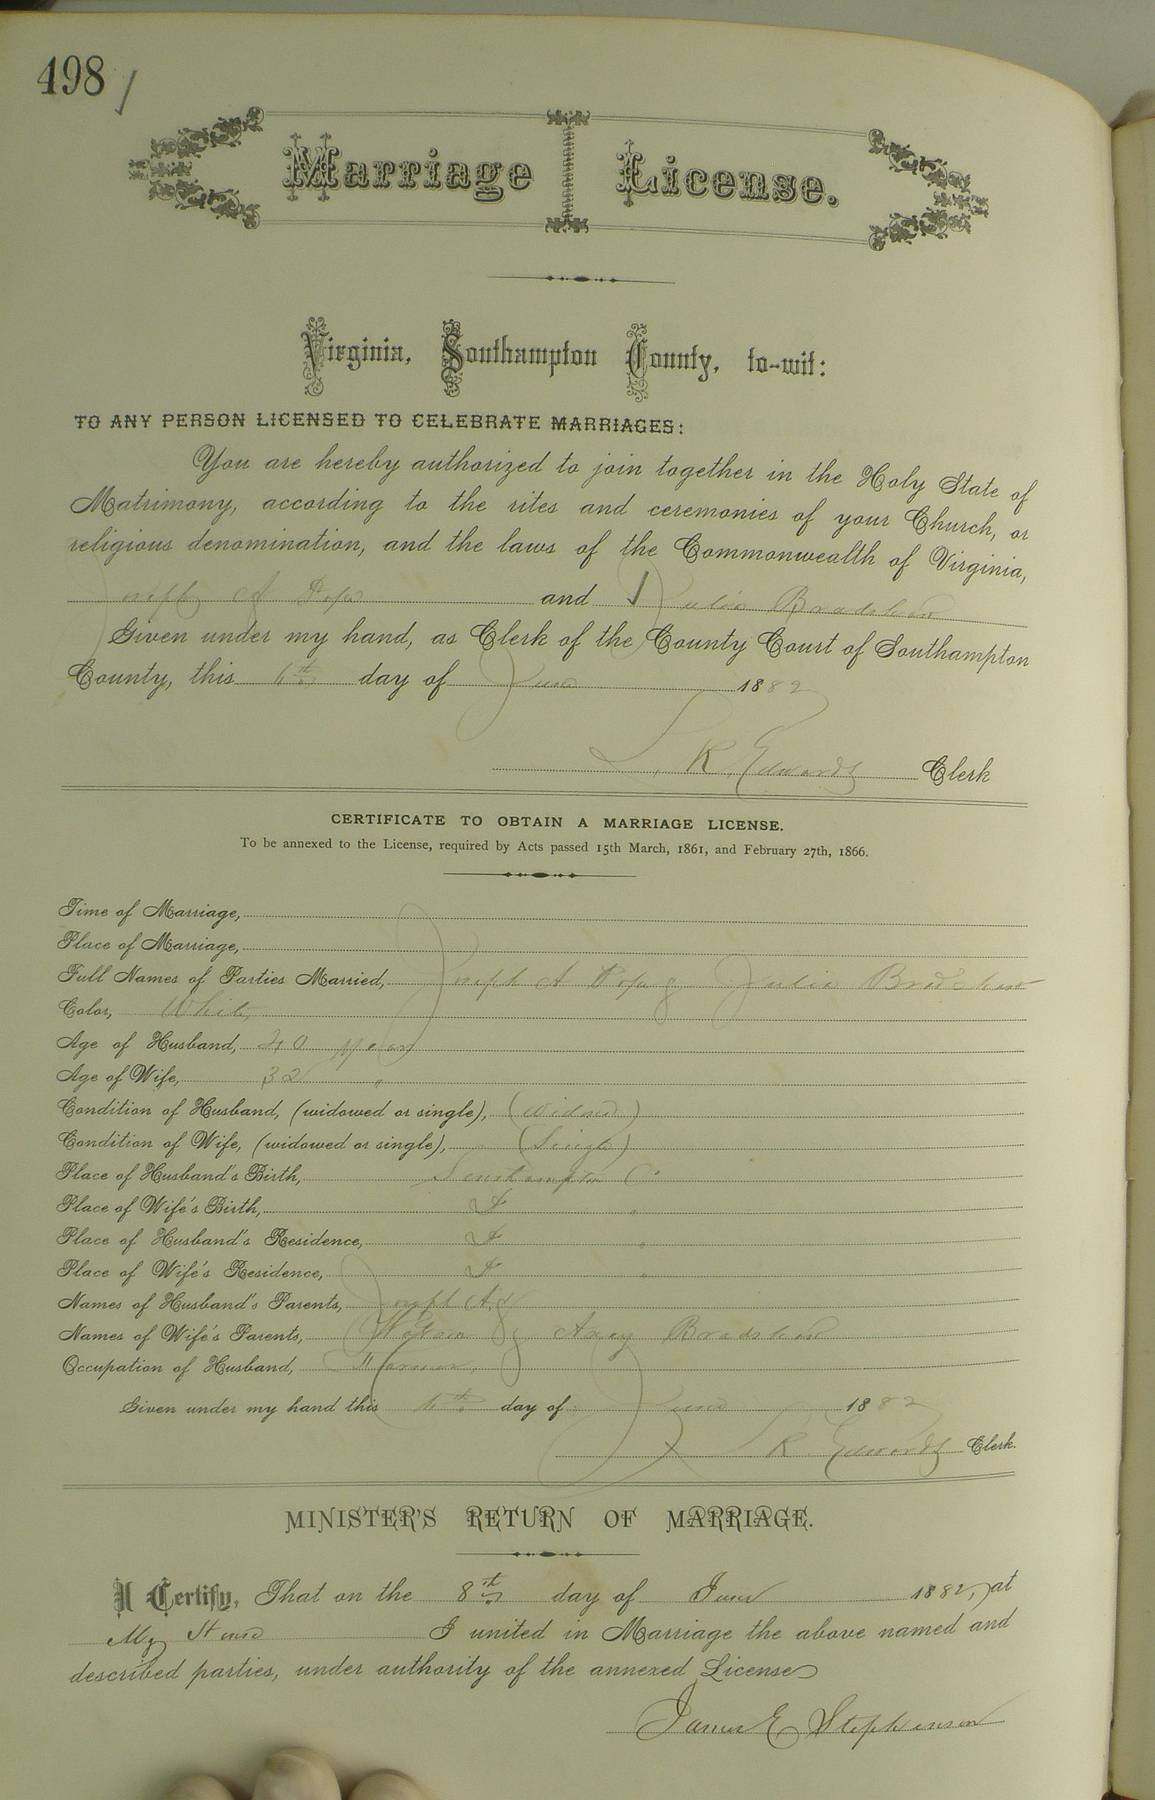 498
Marriage License.
Virginia, Southampton County, to-wit:
TO ANY PERSON LICENSED TO CELEBRATE MARRIAGES:
You are hereby authorized to join together in the Holy State of
Matrimony, according to the rites and ceremonies of your Church, or
religious denomination, and the laws of the Commonwealth of Virginia,
Joseph A Pope and Julia Bradshaw
Given under my hand, as Clerk of the County Court of Southampton
County, this 6th day of June 1882
L. R. Edwards Clerk
CERTIFICATE TO OBTAIN A MARRIAGE LICENSE.
To be annexed to the License, required by Acts passed 15th March, 1861, and February 27th, 1866.
Time of Marriage,
Place of Marriage,
Full Names of Parties Married, Joseph A Pope & Julia Bradshaw
Color, White
Age of Husband, 40 years
Age of Wife, 32 "
Condition of Husband, (widowed or single), (Widowed)
Condition of Wife, (widowed or single), (Single)
Place of Husband's Birth, Southampton Co
Place of Wife's Birth, "
Place of Husband's Residence, "
Place of Wife's Residence, "
Names of Husband's Parents, Joseph A. &
Names of Wife's Parents, & Bradshaw
Occupation of Husband, Farmer
Given under my hand this 6th day of June 1882
L R Edwards Clerk.
MINISTER'S RETURN OF MARRIAGE.
I Certify, That on the 8th day of June 1882, at
My House I united in Marriage the above named and
described parties, under authority of the annexed License
James E Stephenson